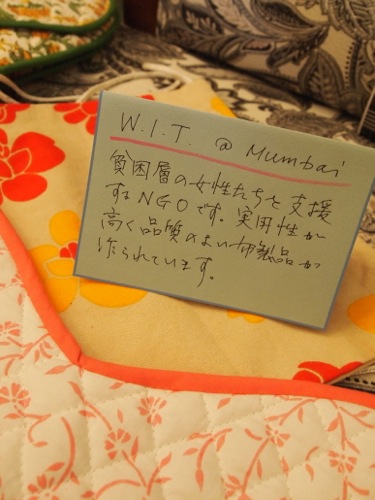 W.I.T. @ Mumbai
貧困層の女性たちを支援
するNGOです。実用性が
高く品質のよい布製品が
作られています。